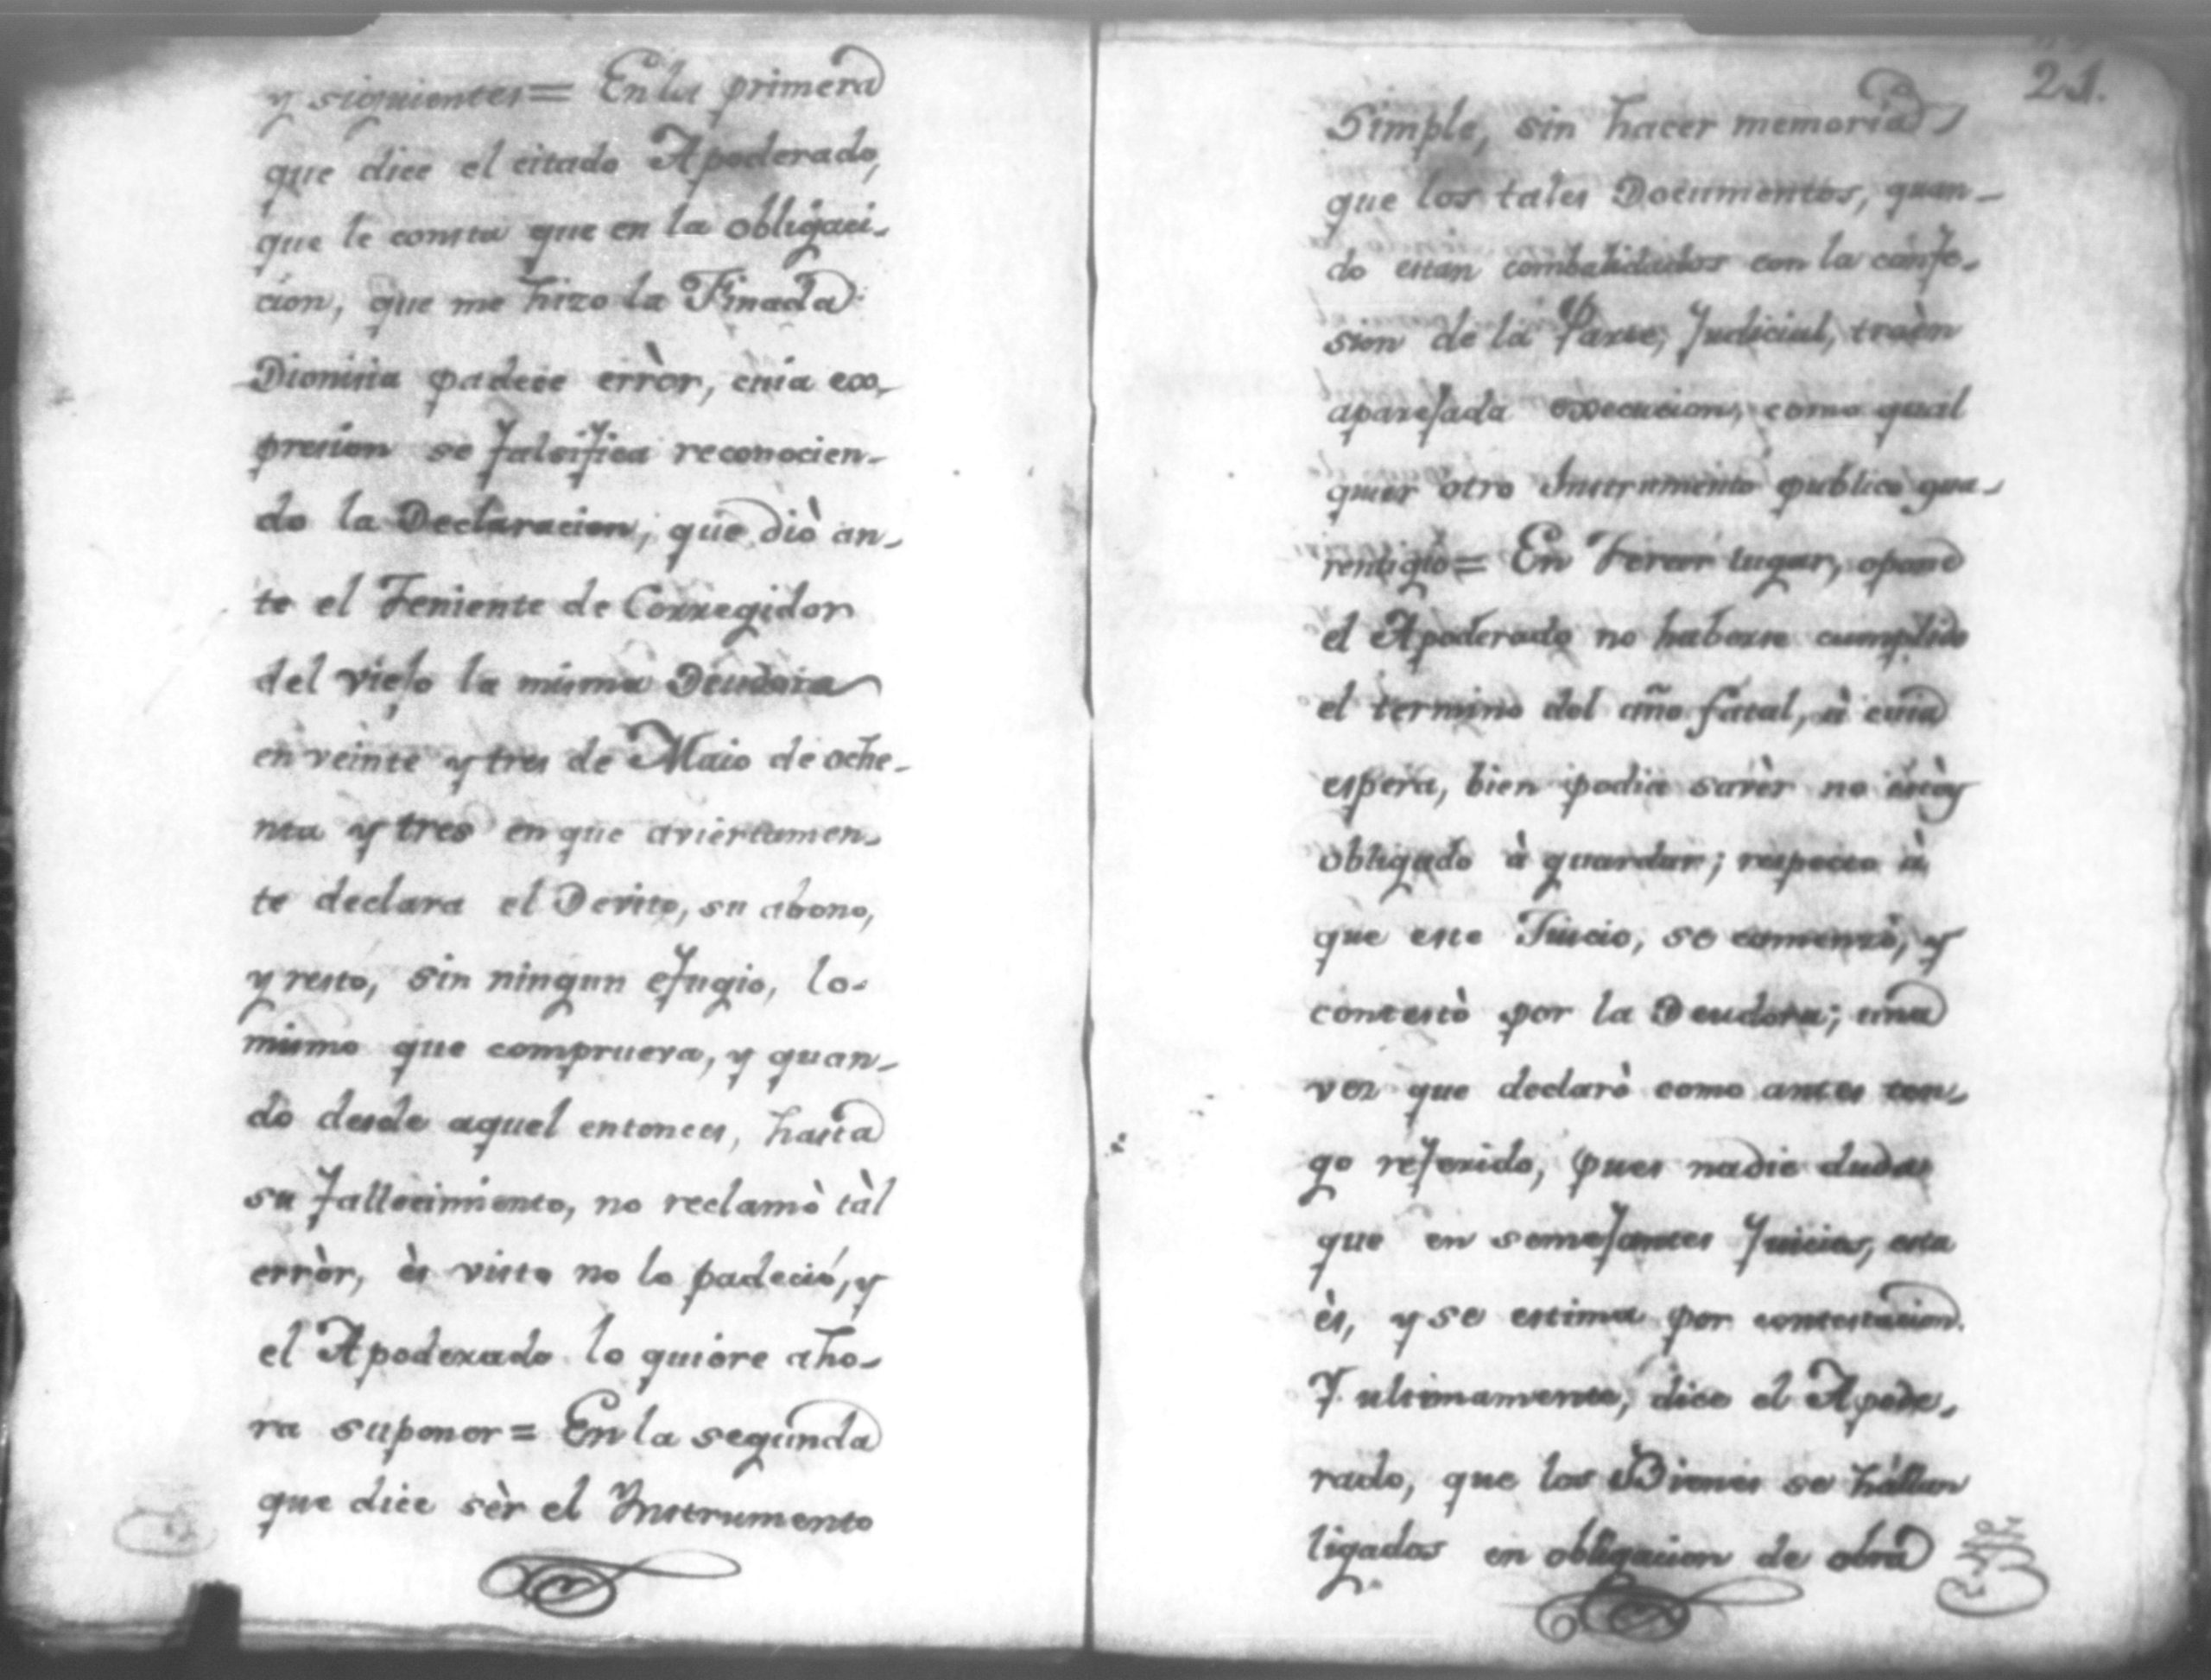 y siguientes = En la primera
que dice el citado Apoderado,
que le consta que en la obligaci-
cion, que me hizo la Finada
Dionisia padece erròr, cuia ex-
presion se falsifica reconocien-
do la Declaracion, que diò an-
te el Teniente de Corregidor
del viejo la misma Deudora
en veinte y tres de Maio de oche-
nta y tres en que aviertamen-
te declara el Devito, su abono,
y resto, sin ningun efugio, lo-
mismo que comprueva, y quan-
do desde aquel entonces, hasta
su fallecimiento, no reclamò tàl
erròr, ès visto no lo padeció, y
el Apoderado lo quiere aho-
ra suponer = En la segunda
que dice sèr el Ynstrumento
21.
Simple, sin hacer memoria
que los tales Documentos, quan-
do estan combalidados con la confe-
sion de la Parte, Judicial, traèn
aparejada execucion, como qual
quier otro Instrumento publico gua-
rentigio = En Tercer lugar, opone
el Apoderado no haberse cumplido
el termino del año fatal, à cuia
espera, bien podia savèr no estòy
obligado à guardar; respecto à
que este Juicio, se comenzò, y
contestò por la Deudora; una
vez que declarò como antes ten-
go referido, pues nadie duda
que en semejantes Juicios, esta
ès, y se estima por contestacion.
Y ultimamente, dice el Apode-
rado, que los Bienes se hàllan
ligados en obligacion de obra